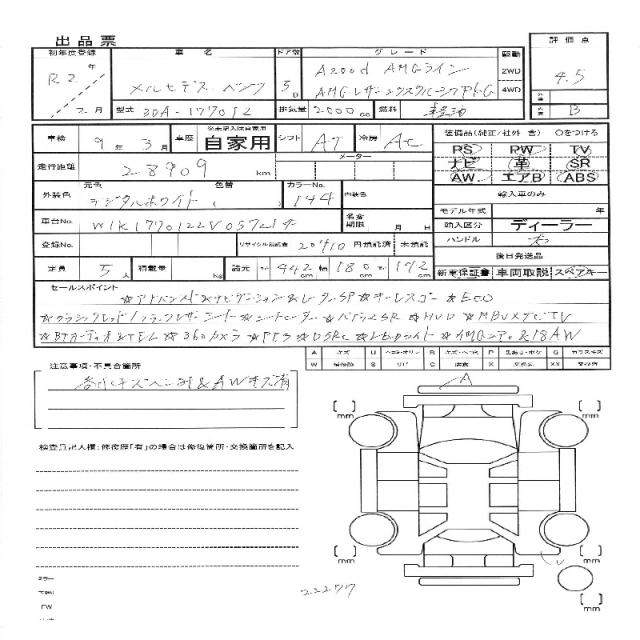 出品票
初年度登録 車名 ドア数 グレード 駆動 評価点
R2年 メルセデス ベンツ 5D A200d AMGライン 2WD 4.5
AMGレザーエクスクルーシブPKG 4WD
7月 型式 3DA-177012 排気量 2.000cc 燃料 軽油 B
車検 9年3月 車歴 自家用 シフト AT 冷房 AC 装備品(純正/社外 含) ○をつける
走行距離 28909km メーター PS PW TV
ナビ 革 SR
AW エアB ABS
外装色 元色 デジタルホワイト 色替 カラーNo. 144 内装色 輸入車のみ
モデル年式 年
車台No. W1K1770122V057 名変期限 月 日 輸入区分 ディーラー
登録No. リサイクル預託金 20410 円預託済 未預託 ハンドル 右
後日発送品
定員 5人 積載量 Kg 諸元 長 442cm 幅 180cm 高 142cm 新車保証書 車両取説 スペアキー
セールスポイント
☆アドバンスド&ナビゲーション&レーダーSP ☆キーレスゴー ☆ECO
☆クラシックレッド/ブラックレザーシート ☆シートヒーター ☆パノラマSR ☆HUD ☆MBUXナビTV
☆BTオーディオ&TEL ☆360°カメラ ☆PTS ☆DSRC ☆LEDライト ☆AMGエアロ&18AW
A キズ U ヘコミ・ヘタリ B キズ・ヘコミ P 色あせ・ボケ G ガラスキズ
W 補修跡 S サビ C 腐食 X 交換必要 XX 交換済
注意事項・不具合箇所
各小キズヘコミ有&AWキズ有
検査員記入欄:修復歴「有」の場合は修復箇所・交換箇所を記入
A
mm mm
mm mm
ミラー
下廻り
FW
22277